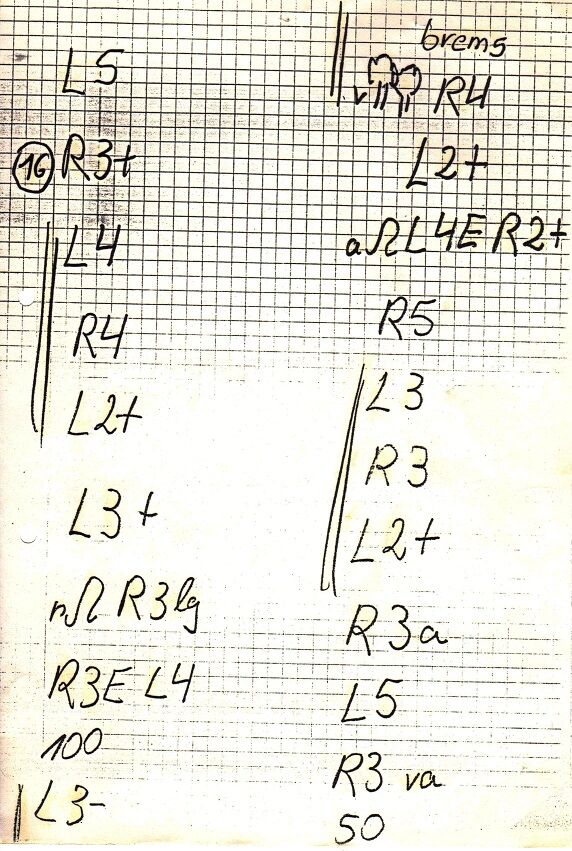 L5
16 R3+
L4
R4
L2+
L3+
nΩ R3lg
R3E L4
100
L3-
brems
v R4
L2+
aΩ L4E R2+
R5
L3
R3
L2+
R3a
L5
R3 va
50